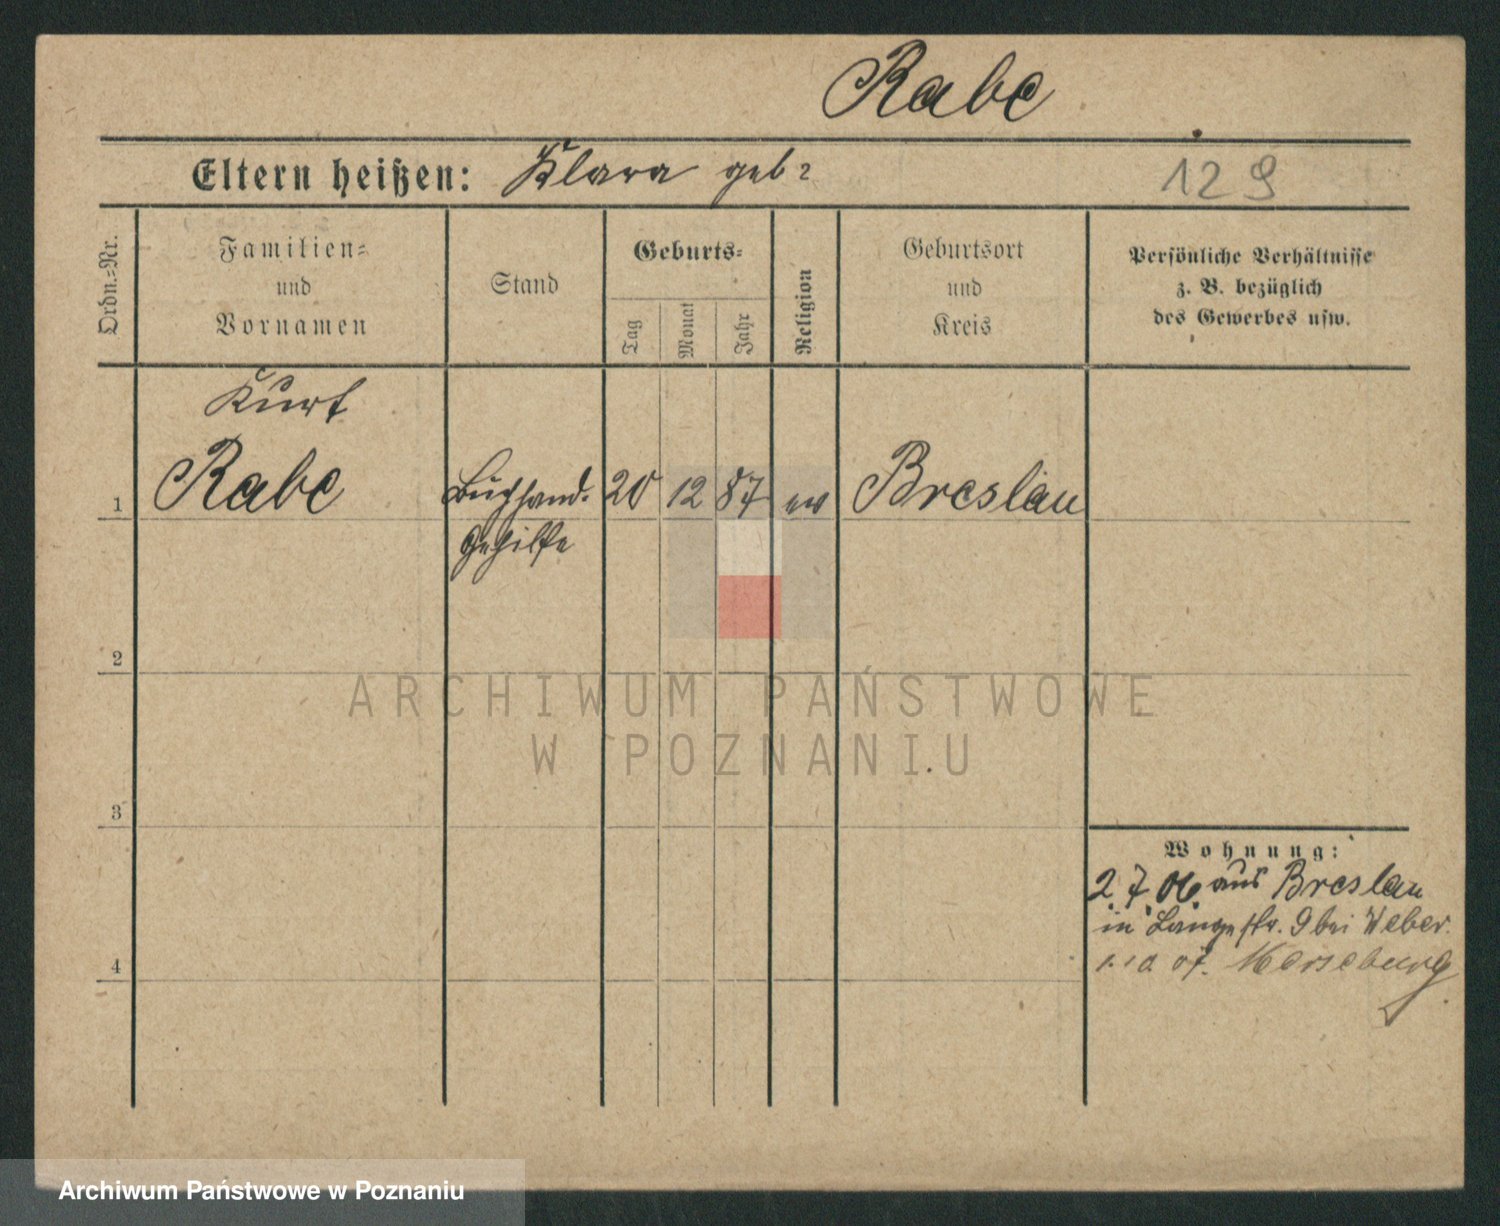 Rabe
Eltern heißen: Klara geb?
129
Ordn.=Nr.
Familien=
und
Vornamen
Stand
Geburts=
Tag
Monat
Jahr
Religion
Geburtsort
und
Kreis
Persönliche Verhältnisse
z. B. bezüglich
des Gewerbes usw.
Kurt
1 Rabe Buchhand. 20 12 87 ev Breslau
Gehilfe
2
3
4
Wohnung:
2 7 06 aus Breslau
in Langestr. 9 bei Weber.
1.10 07. Merseburg
ARCHIWUM PAŃSTWOWE
W POZNANIU
Archiwum Państwowe w Poznaniu